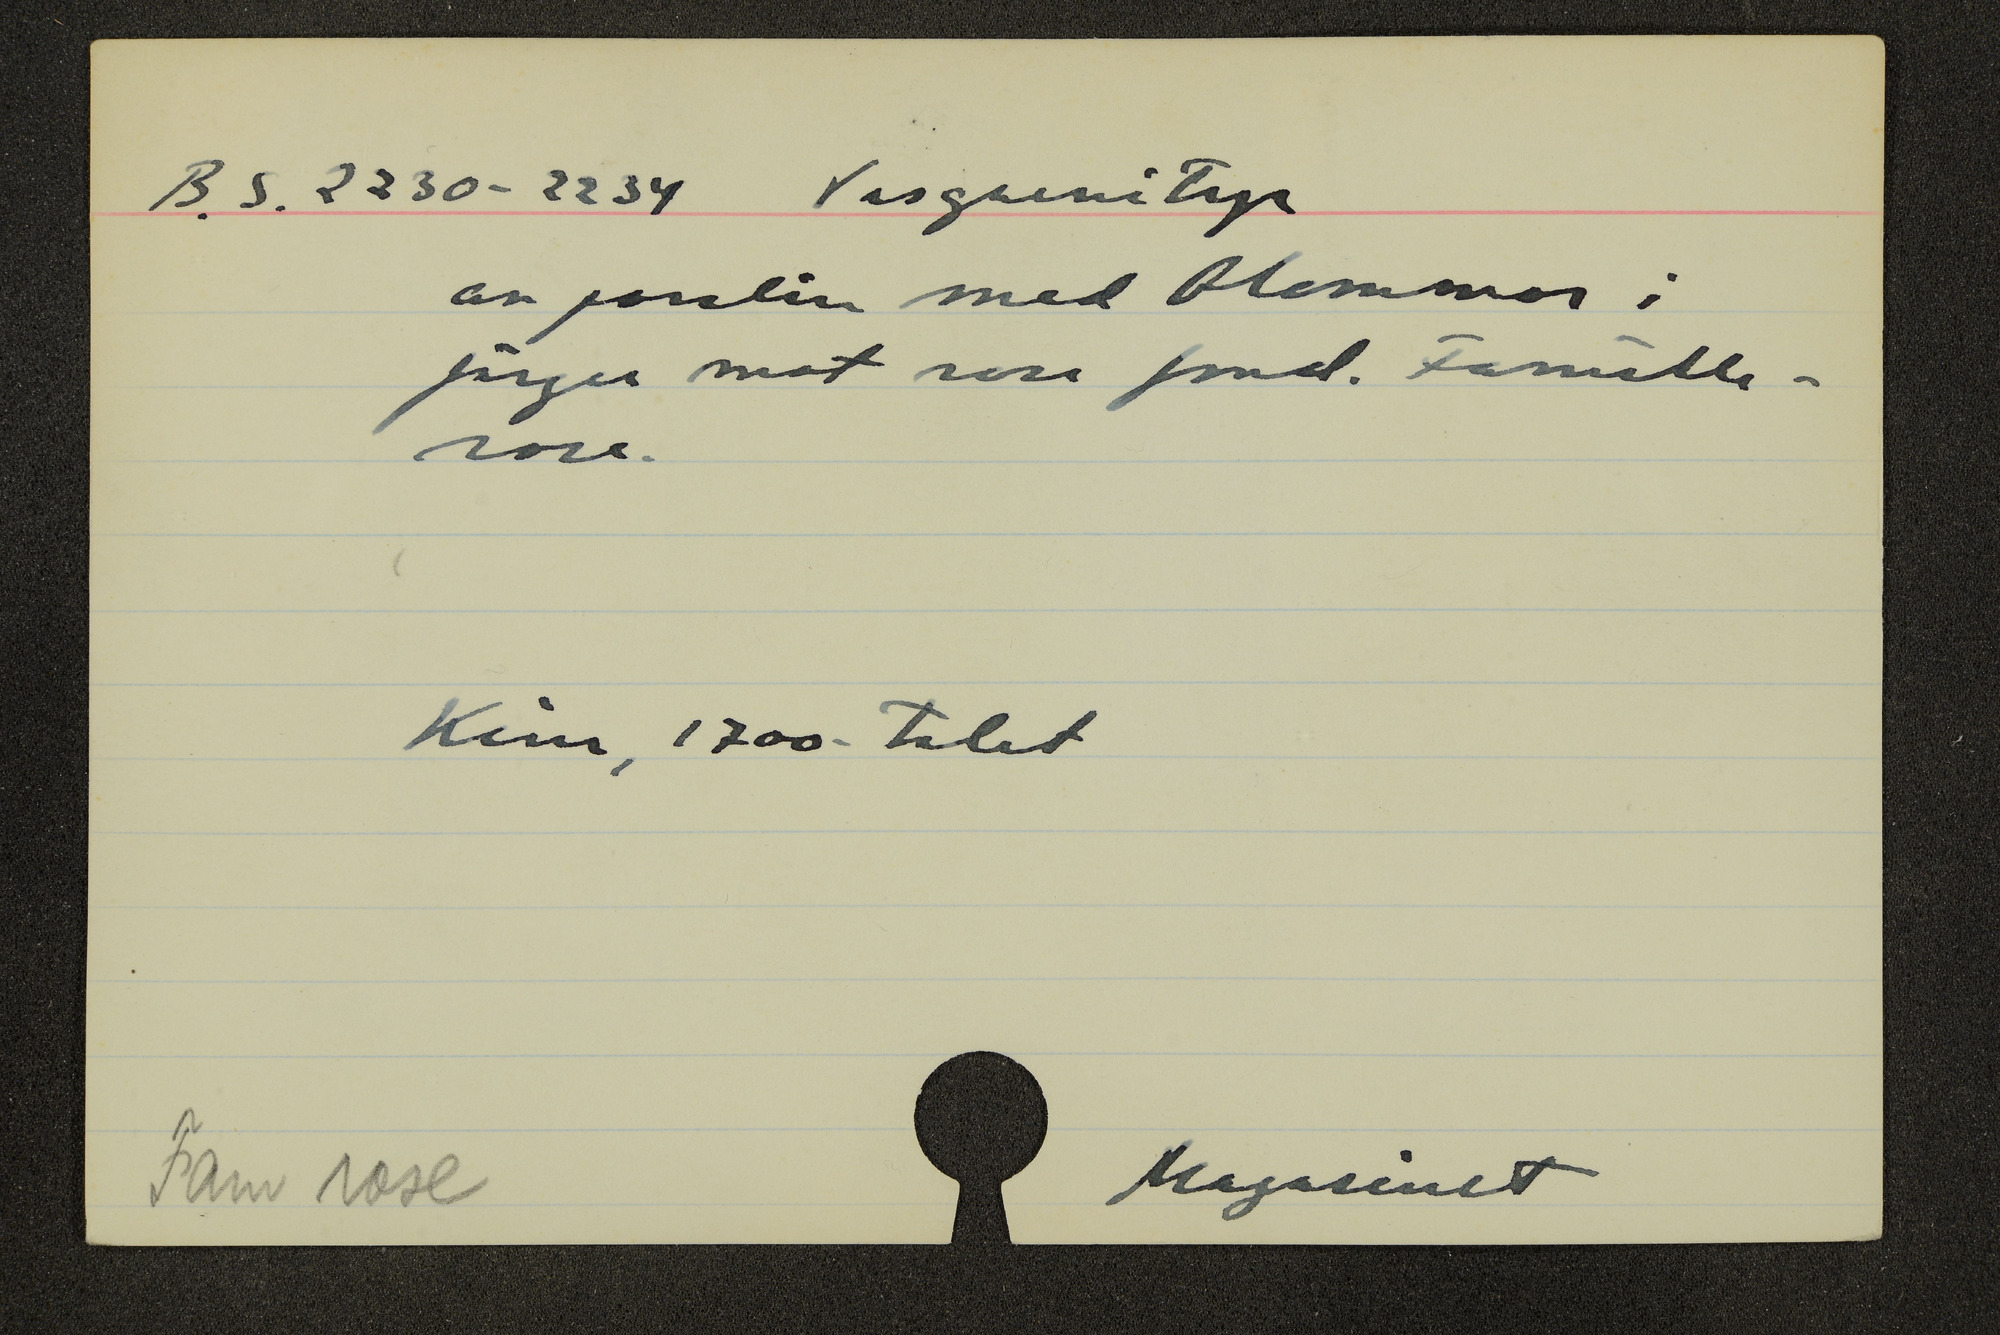 B. S. 2230-2234 Vasgarnityr
av porslin med blommor i
färger mot rosa fond. Famille-
rose.
Kina, 1700-talet
Fam rose
Magasinet